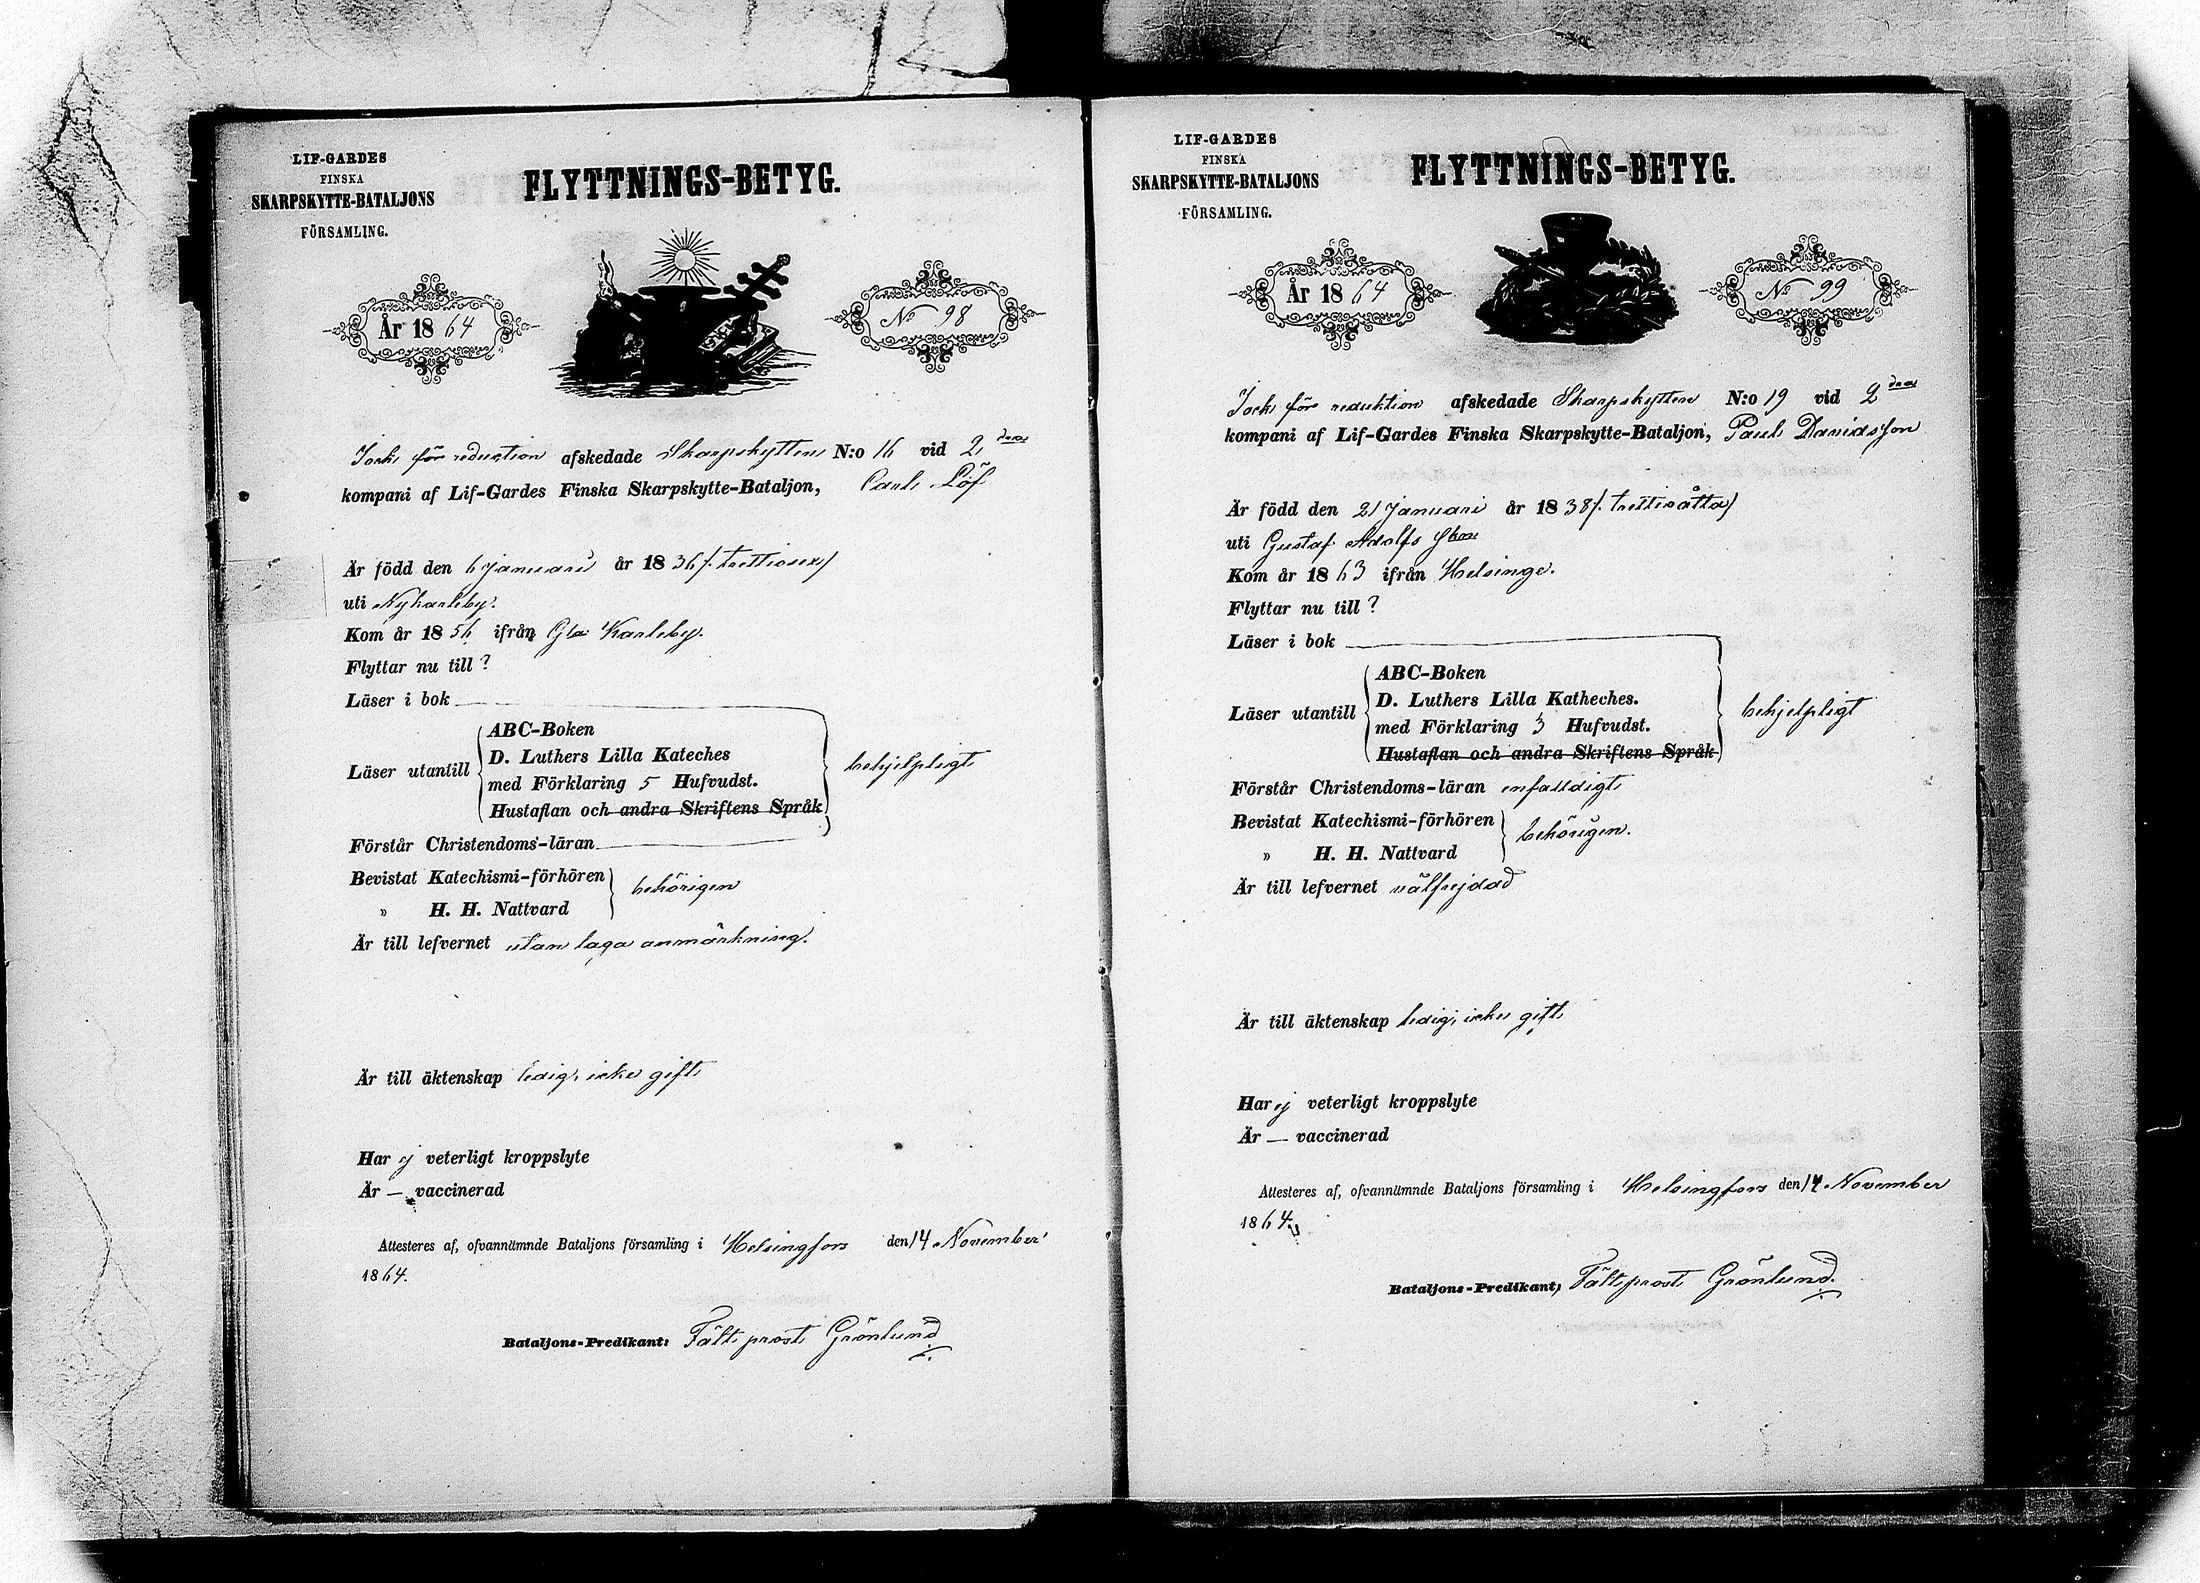 LIF-GARDES
FINSKA
SKARPSKYTTE-BATALJONS
FÖRSAMLING.
FLYTTNINGS-BETYG.
År 1864
No 98
för reduction afskedade Skarpskytten N:o 16 vid 2dra
kompani af Lif-Gardes Finska Skarpskytte-Bataljon, Carl Löf
Är född den 6 januari år 1836 /: trettiosex/
uti Nykarleby.
Kom år 1856 ifrån Gla Karleby.
Flyttar nu till ?
Läser i bok
Läser utantill
ABC-Boken
D. Luthers Lilla Kateches
med Förklaring 5 Hufvudst.
Hustaflan och andra Skriftens Språk
behjelpligt
Förstår Christendoms-läran
Bevistat Katechismi-förhören
» H. H. Nattvard
behörigen
Är till lefvernet utan laga anmärkning.
Är till äktenskap ledig, icke gift
Har ej veterligt kroppslyte
Är — vaccinerad
Attesteres af, ofvannämnde Bataljons församling i Helsingfors den 14 November
1864.
Bataljons-Predikant: Fältprost Grönlund.
LIF-GARDES
FINSKA
SKARPSKYTTE-BATALJONS
FÖRSAMLING.
FLYTTNINGS-BETYG.
År 1864
No 99
för reduktion afskedade Skarpskytten N:o 19 vid 2dra
kompani af Lif-Gardes Finska Skarpskytte-Bataljon, Paul Davidsson
Är född den 21 januari år 1838 /: trettioåtta/
uti Gustaf Adolfs
Kom år 1863 ifrån Helsinge.
Flyttar nu till ?
Läser i bok
Läser utantill
ABC-Boken
D. Luthers Lilla Katheches.
med Förklaring 3 Hufvudst.
Hustaflan och andra Skriftens Språk
behjelpligt
Förstår Christendoms-läran enfaldigt
Bevistat Katechismi-förhören
» H. H. Nattvard
behörigen.
Är till lefvernet välfrejdad
Är till äktenskap ledig, icke gift
Har ej veterligt kroppslyte
Är — vaccinerad
Attesteres af, ofvannämnde Bataljons församling i Helsingfors den 14 November
1864.
Bataljons-Predikant, Fältprost Grönlund.